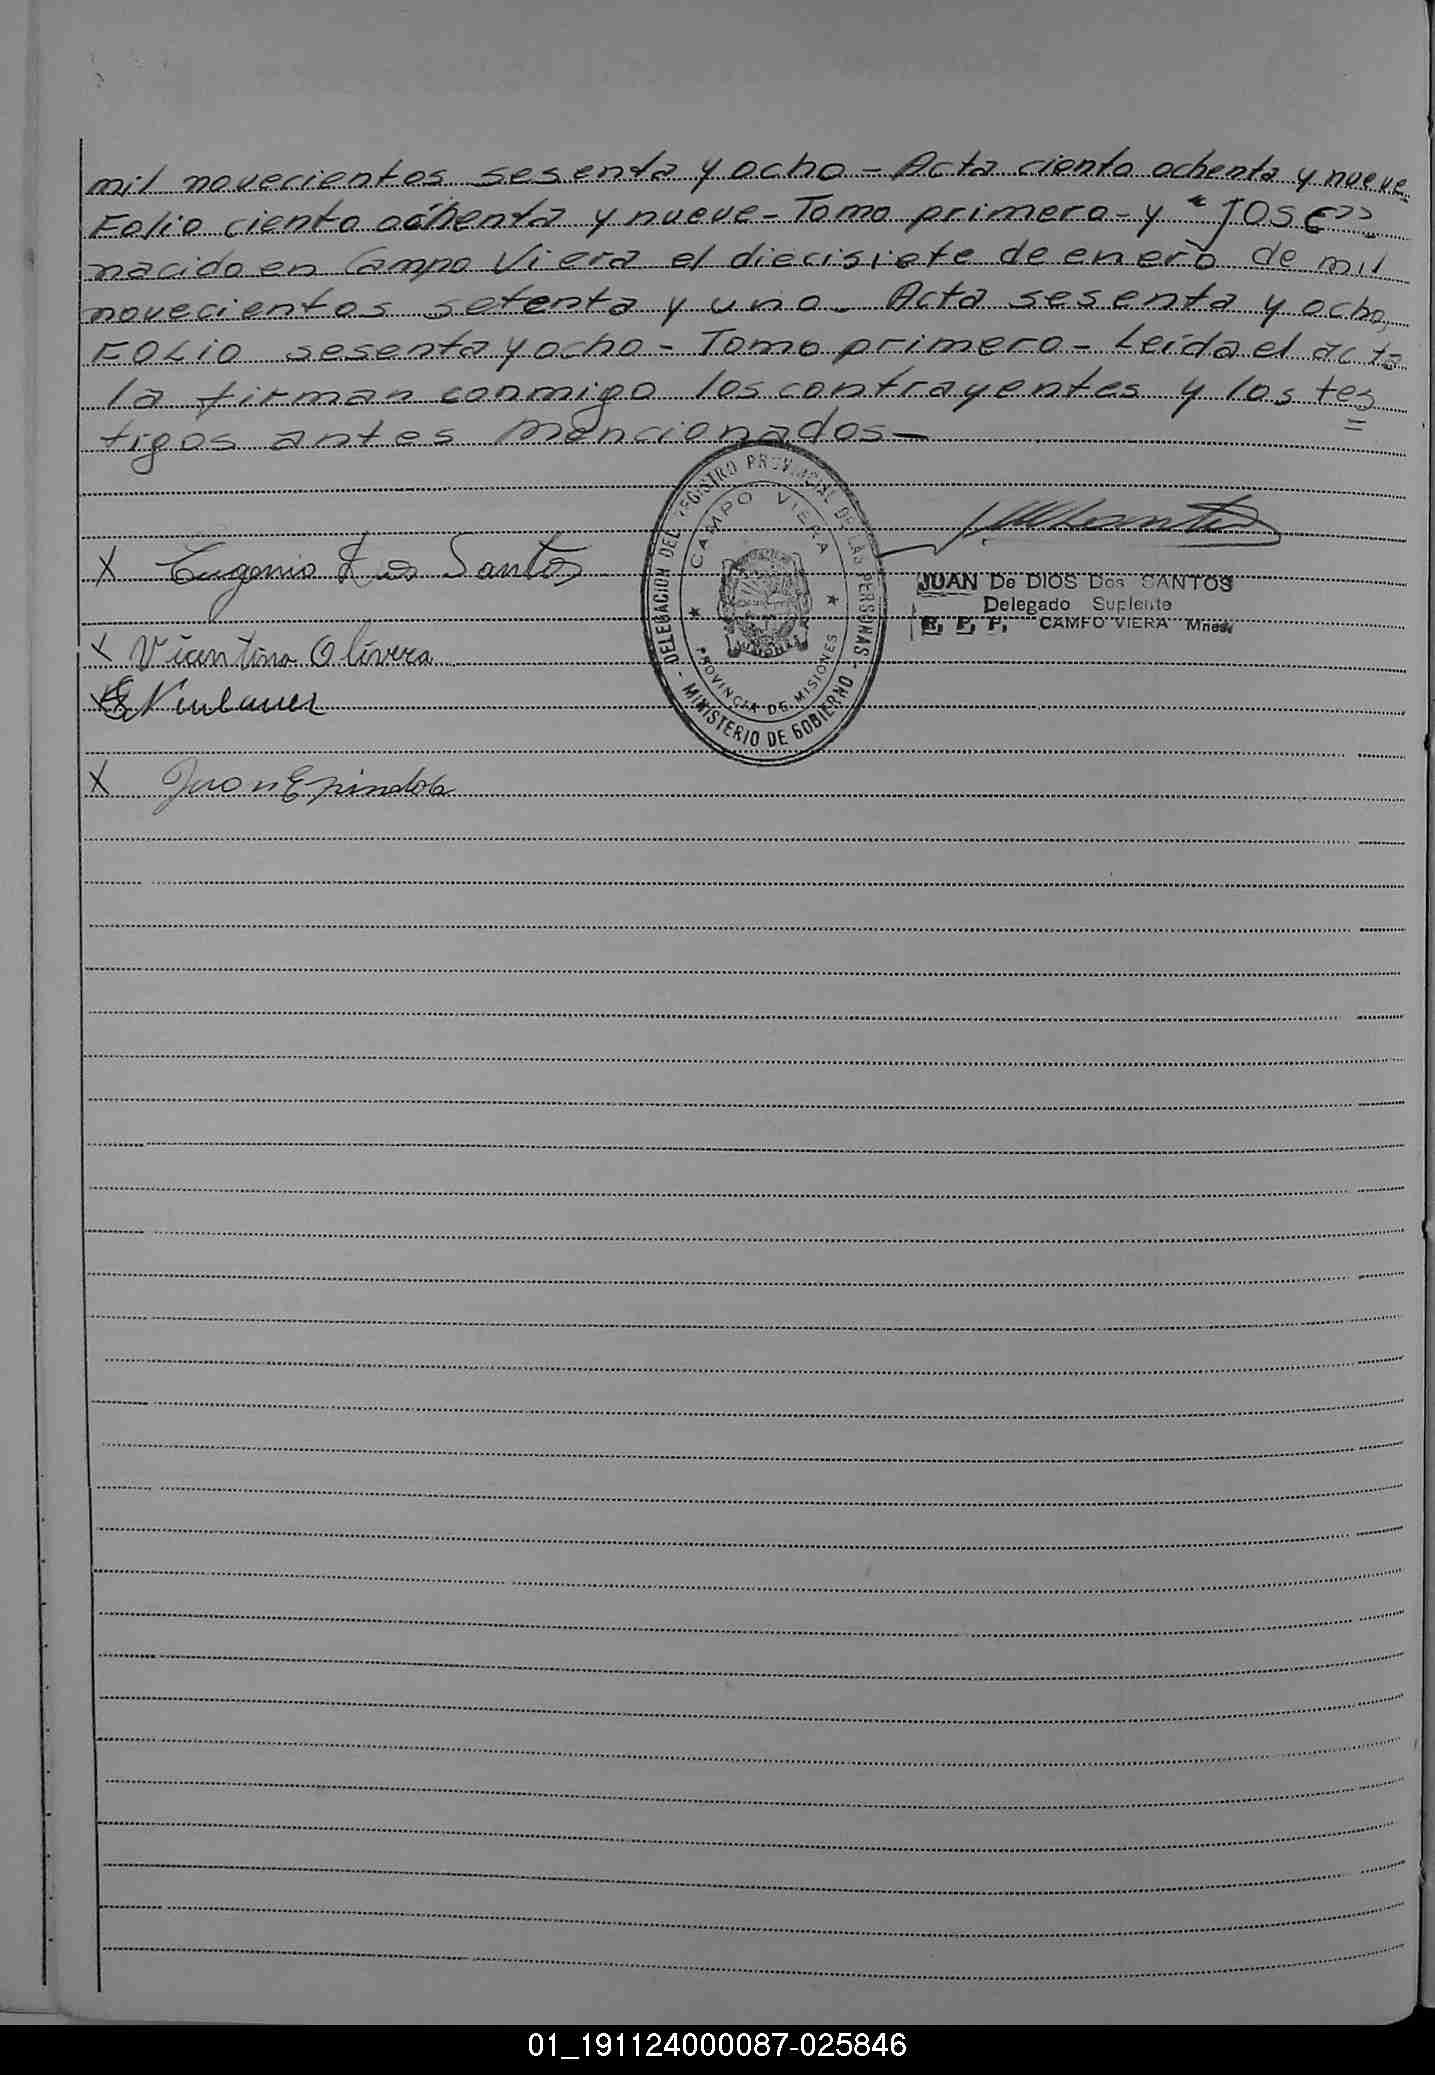 mil novecientos sesenta y ocho - Acta ciento ochenta y nueve
Folio ciento ochenta y nueve - Tomo primero - y "JOSE"
nacido en Campo Viera el diecisiete de enero de mil
novecientos setenta y uno - Acta sesenta y ocho,
FOLIO sesenta y ocho - Tomo primero - Leida el acta
la firman conmigo los contrayentes y los tes=
tigos antes mencionados -
DELEGACION DEL REGISTRO PROVINCIAL DE LAS PERSONAS - MINISTERIO DE GOBIERNO -
CAMPO VIERA
PROVINCIA DE MISIONES
MISIONES
JUAN De DIOS Dos SANTOS
Delegado Suplente
R. P. P. CAMPO VIERA Mnes.
X Eugenio Santos
X Vicentina Olivera
X
X Juan Espindola
01_191124000087-025846